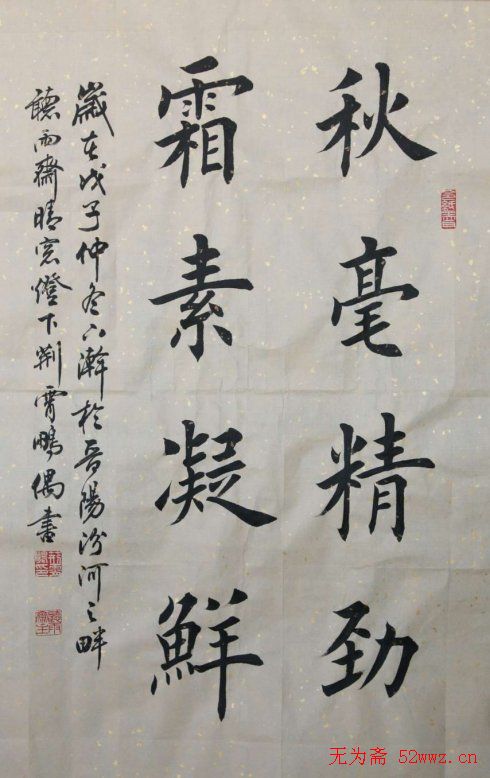 秋毫精劲
霜素凝鮮
歲在戊子仲冬下澣於晋陽汾河之畔
聽雨齋晴窓燈下荆霄鵬偶書
无为斋 52wwz.cn